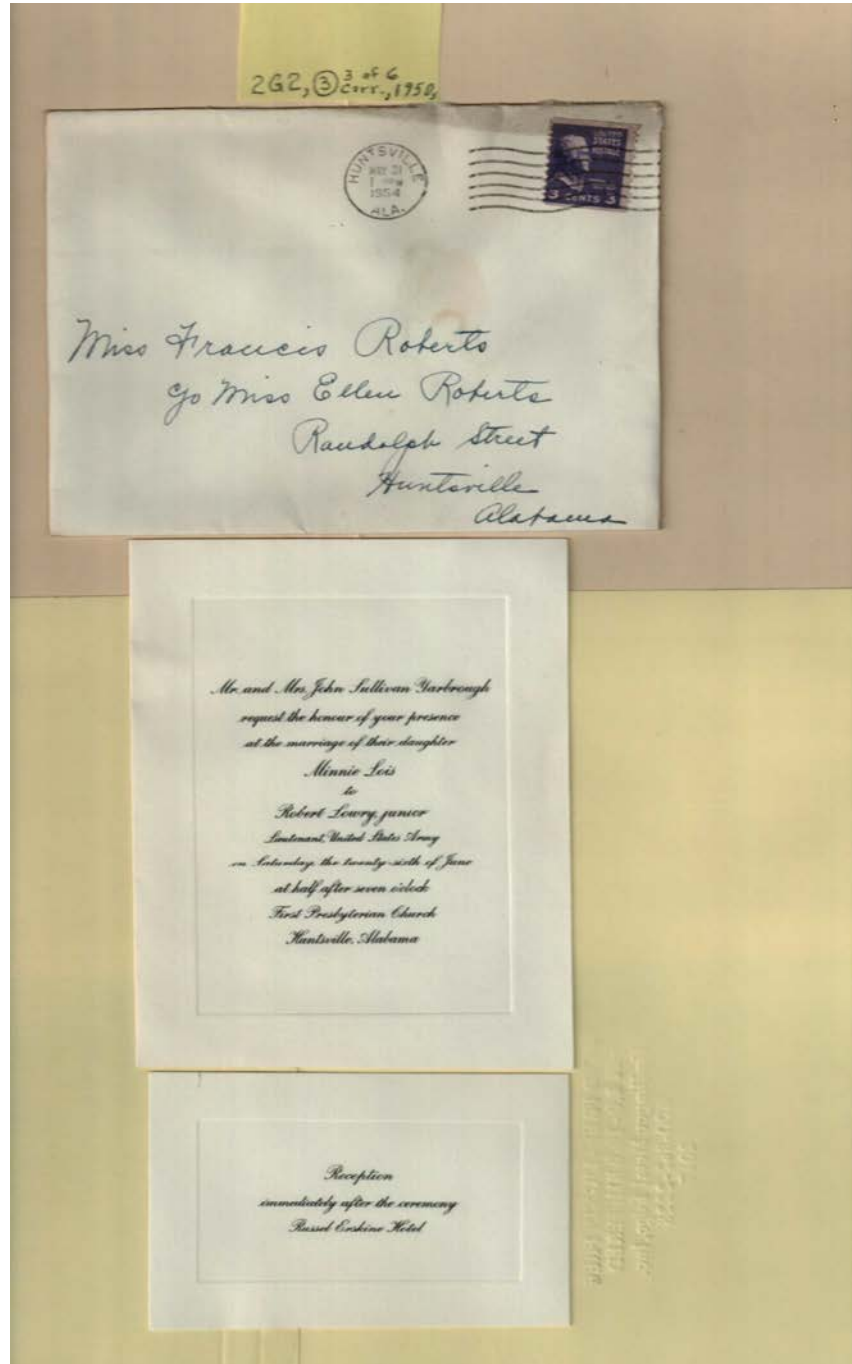 2G2, ③ 3 of 6
Corr., 1950,
HUNTSVILLE
MAY 31
1 PM
1954
ALA.
UNITED
STATES
POSTAGE
3 CENTS 3
Miss Francis Roberts
c/o Miss Ellen Roberts
Randolph Street
Huntsville
Alabama
Mr. and Mrs. John Sullivan Yarbrough
request the honour of your presence
at the marriage of their daughter
Minnie Lois
to
Robert Lowry, junior
Lieutenant, United States Army
on Saturday, the twenty-sixth of June
at half after seven o'clock
First Presbyterian Church
Huntsville, Alabama
Reception
immediately after the ceremony
Russel Erskine Hotel